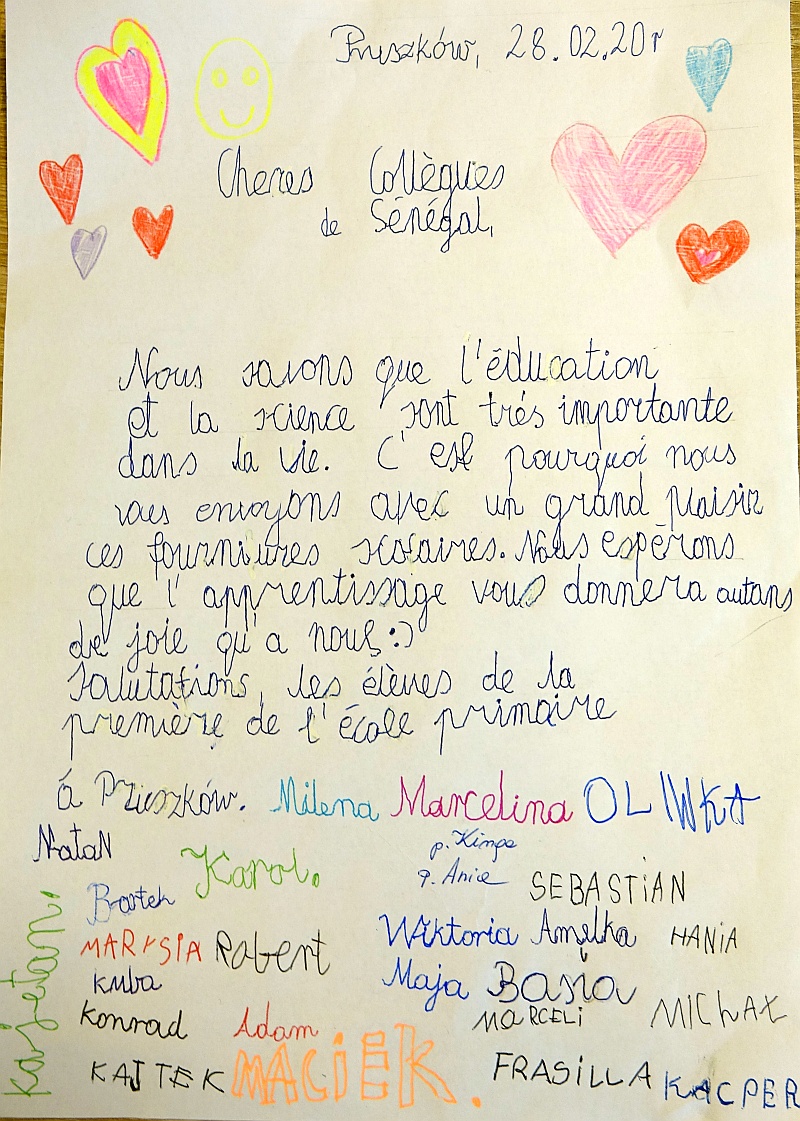 Pruszków, 28.02.20r
Cheres Collègues
de Sénégal,
Nous savons que l'éducation
et la science sont trés importante
dans la vie. C'est pourquoi nous
vous envoyons avec un grand plaisir
ces fournitures scolaires. Nous espérons
que l'apprentissage vous donnera autans
de joie qu'a nous :)
Salutations, les élèves de la
première de l'école primaire
á Pruszków. Milena Marcelina OLIWKA
Natan Karol. p. Kinga
p. Ania SEBASTIAN
Bartek
Wiktoria Amelka HANIA
MARYSIA Robert
Kuba Maja Basia
Kajetan.
Konrad Adam MARCELI MICHAŁ
KAJTEK MACIEK. FRASILLA KACPER